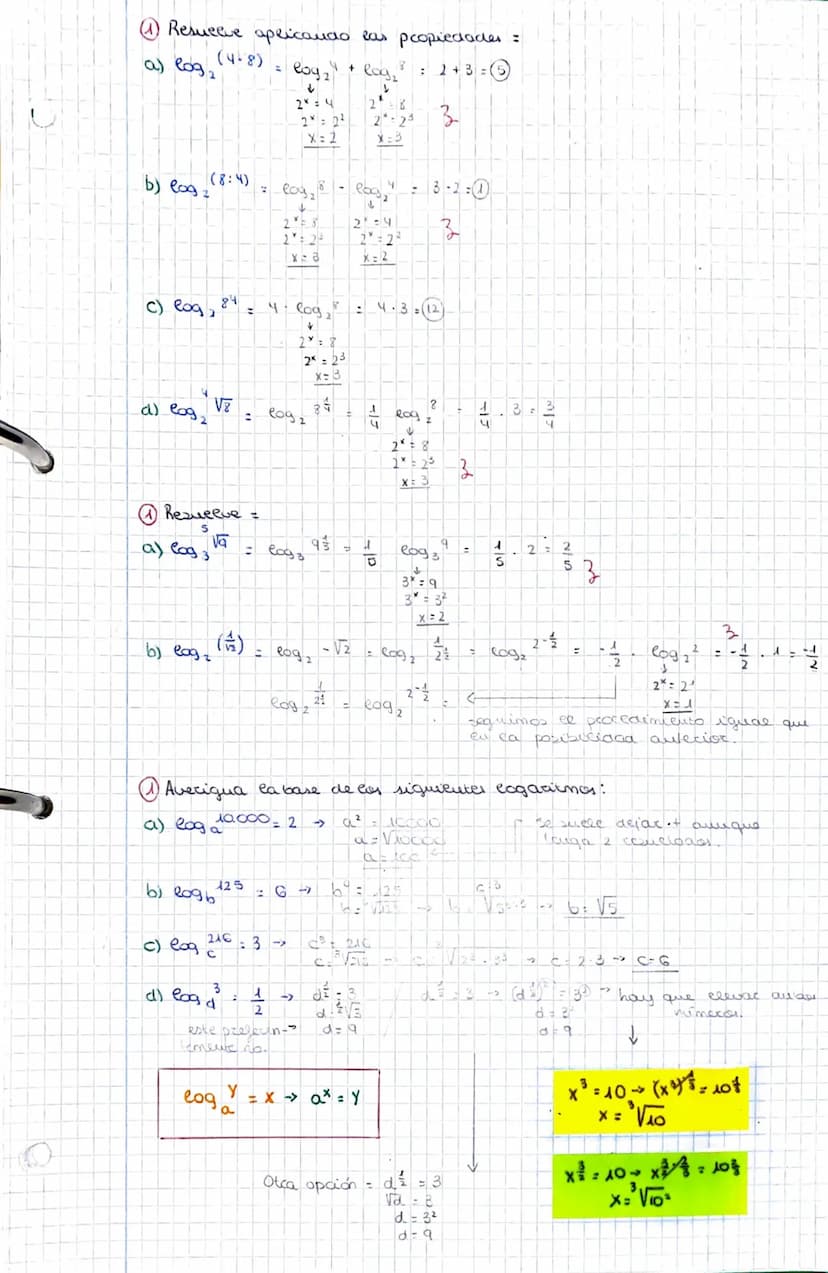 ① Resuelve aplicando las propiedades =
a) log₂ (4·8) = log₂ 4 + log₂ 8 = 2 + 3 = 5
↓ ↓
2ˣ = 4 2ˣ = 8
2ˣ = 2² 2ˣ = 2³
x = 2 x = 3
b) log₂ (8:4) = log₂ 8 - log₂ 4 = 3 - 2 = 1
↓ ↓
2ˣ = 8 2ˣ = 4
2ˣ = 2³ 2ˣ = 2²
x = 3 x = 2
c) log₂ 8⁴ = 4 · log₂ 8 = 4 · 3 = 12
↓
2ˣ = 8
2ˣ = 2³
x = 3
d) log₂ ⁴√8 = log₂ 8^(1/4) = 1/4 log₂ 8 = 1/4 · 3 = 3/4
↓
2ˣ = 8
2ˣ = 2³
x = 3
① Resuelve =
a) log₃ ⁵√9 = log₃ 9^(1/5) = 1/5 log₃ 9 = 1/5 · 2 = 2/5
↓
3ˣ = 9
3ˣ = 3²
x = 2
b) log₂ (1/√2) = log₂ -√2 = log₂ 1/2^(1/2) = log₂ 2^(-1/2) = -1/2 · log₂ 2 = -1/2 · 1 = -1/2
↓
2ˣ = 2¹
x = 1
log₂ 1/2^(1/2) = log₂ 2^(-1/2) = ←
seguimos el procedimiento igual que
en la posibilidad anterior.
① Averigua la base de los siguientes logaritmos:
a) logₐ 10.000 = 2 → a² = 10000
a = √10000
a = 100 ←
se suele dejar + aunque
tenga 2 soluciones.
b) log_b 125 = 6 → b⁶ = 125
→ b = → b = √5
c) log_c 216 = 3 → c³ = 216
c = ³√216 → c = √2³ · 3³ → c = 2·3 → c = 6
d) log_d 3 = 1/2 → d^(1/2) = 3 d^(1/2) = 3 → (d^(1/2))² = 3² → hay que elevar ambos
números.
d = ^(1/2)√3 d = 3²
este preferi-→ d = 9 d = 9 ↓
blemente no.
logₐ y = x → aˣ = y
x³ = 10 → (x³)^(1/3) = 10^(1/3)
x = ³√10
x^(3/2) = 10 → x^(3/2 · 2/3) = 10^(2/3)
x = ³√10²
Otra opción = d^(1/2) = 3
√d = 3
d = 3²
d = 9